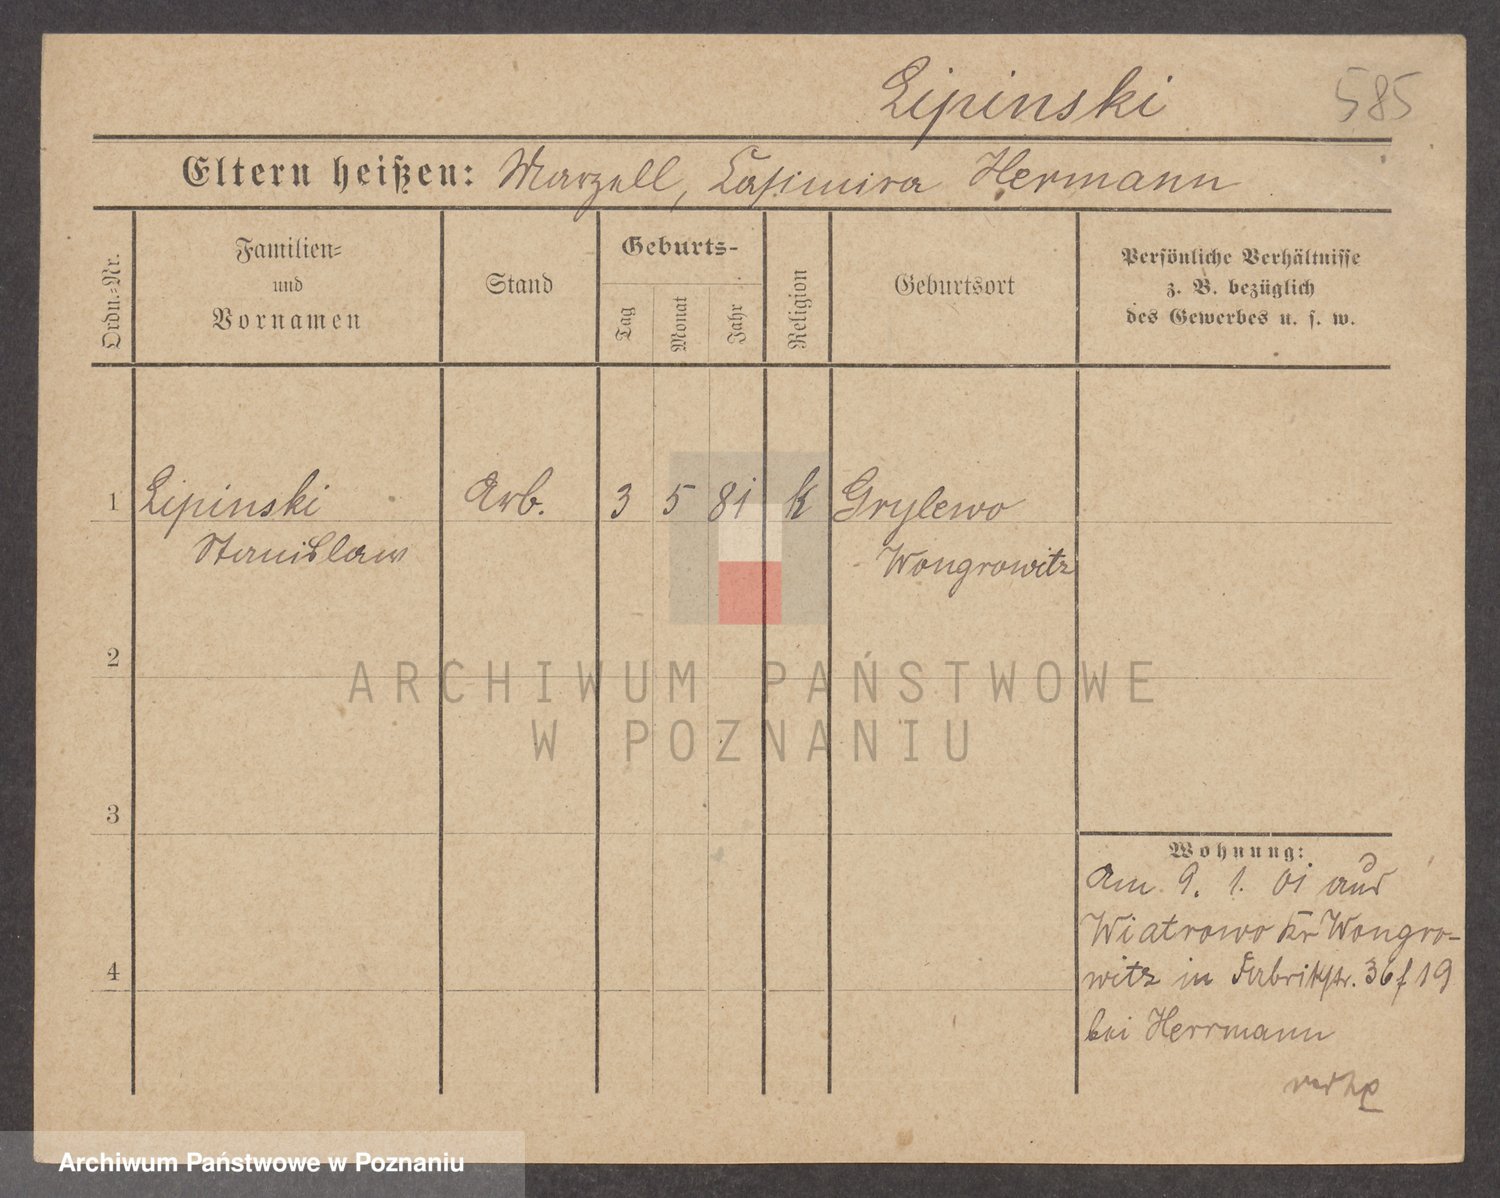 Lipinski 585
Eltern heißen: Marzell, Casimira Hermann
Ordn.=Nr.
Familien=
und
Vornamen
Stand
Geburts-
Tag
Monat
Jahr
Religion
Geburtsort
Persönliche Verhältnisse
z. B. bezüglich
des Gewerbes u. s. w.
1 Lipinski Arb. 3 5 81 k Grylewo
Stanislaus Wongrowitz
2
ARCHIWUM PAŃSTWOWE
W POZNANIU
3
Wohnung:
Am 9. 1. 01 aus
Wiatrowo Kr Wongro-
witz in Fabrikstr. 36 f 19
bei Herrmann
4
Archiwum Państwowe w Poznaniu